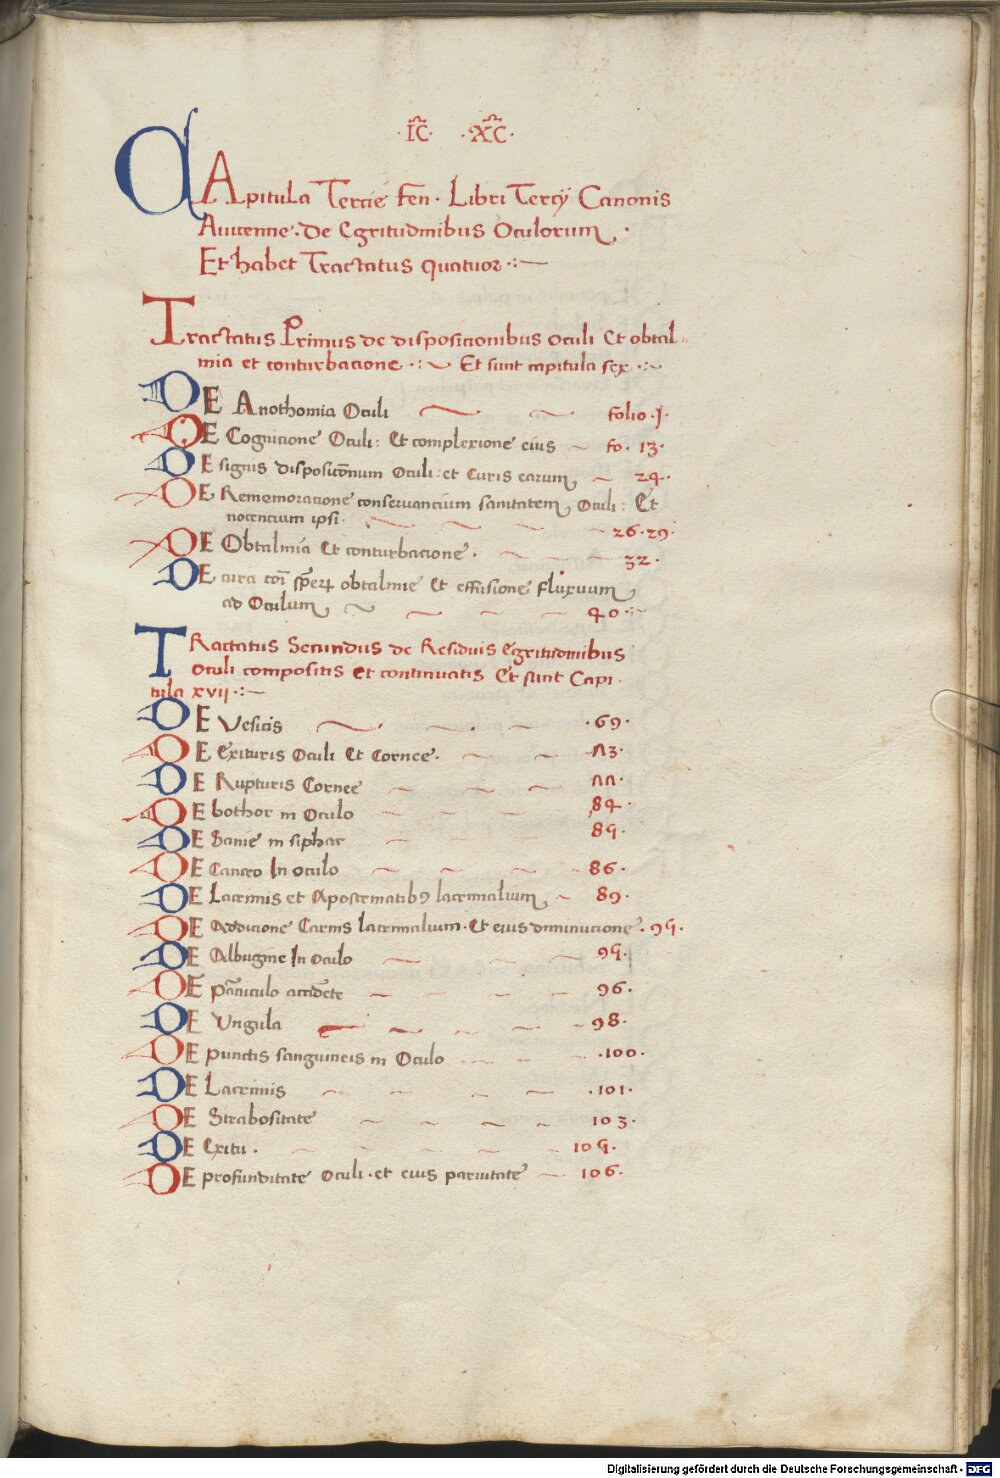 ·IC· ·XC·
CApitula Tercie Fen · Libri Tercij Canonis
Auicenne · De Egritudinibus Oculorum ·
Et habet Tractatus quatuor ·:·—
Tractatus Primus de dispositionibus oculi Et obtal-
mia et conturbacione ·:~ Et sunt capitula sex ·:~
DE Anothomia Oculi folio · j·
DE Cognicione Oculi : Et complexione eius fo. 13·
DE signis dispositōnum Oculi : et Curis earum 24·
DE Rememoracione conseruancium sanitatem Oculi : Et
nocencium ipsi · 26·29·
DE Obtalmia Et conturbacione · 32·
DE cura coī obtalmie Et effusione fluxuum
ad Oculum 40·
TRactatus Secundus de Residuis Egritudinibus
Oculi compositis et continuatis Et sunt Capi·
tula xvij ·:—
DE Vesicis ·69·
DE Exituris Oculi Et Cornee · 73·
DE Rupturis Cornee 77·
DE bothor in Oculo 84·
DE Sanie in siphac 85·
DE Cancro In oculo 86·
DE Lacrimis et Apostematib9 lacrimalium 89·
DE Addicione Carnis lacrimalium · Et eius diminucione · 95·
DE Albugine In Oculo 95·
DE pāniculo accidēte 96·
DE Vngula 98·
DE punctis sanguineis in Oculo ·100·
DE Lacrimis ·101·
DE Strabositate 103·
DE Exitu · 105·
DE profunditate Oculi · et eius paruitate 106·
Digitalisierung gefördert durch die Deutsche Forschungsgemeinschaft - DFG